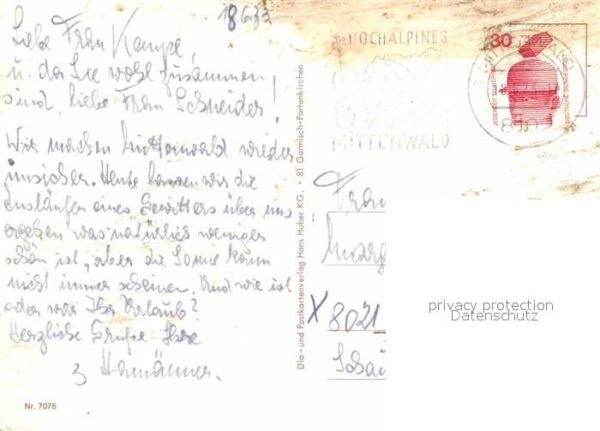 18.6.73
Liebe Frau Kampe
u. da Sie wohl zusammen
sind, liebe Frau Schneider!
Wir machen Mittenwald wieder
unsicher. Heute lassen wir die
Ausläufer eines Gewitters über uns
ergehen was natürlich weniger
schön ist, aber die Sonne kann
nicht immer scheinen. Und wie ist
oder war Ihr Urlaub?
Herzliche Grüße Ihre
3
Nr. 7075
Dia- und Postkartenverlag Hans Huber KG. · 81 Garmisch-Partenkirchen
HOCHALPINES
MITTENWALD
30
DEUTSCHE BUNDESPOST
Frau
X 8021
privacy protection
Datenschutz